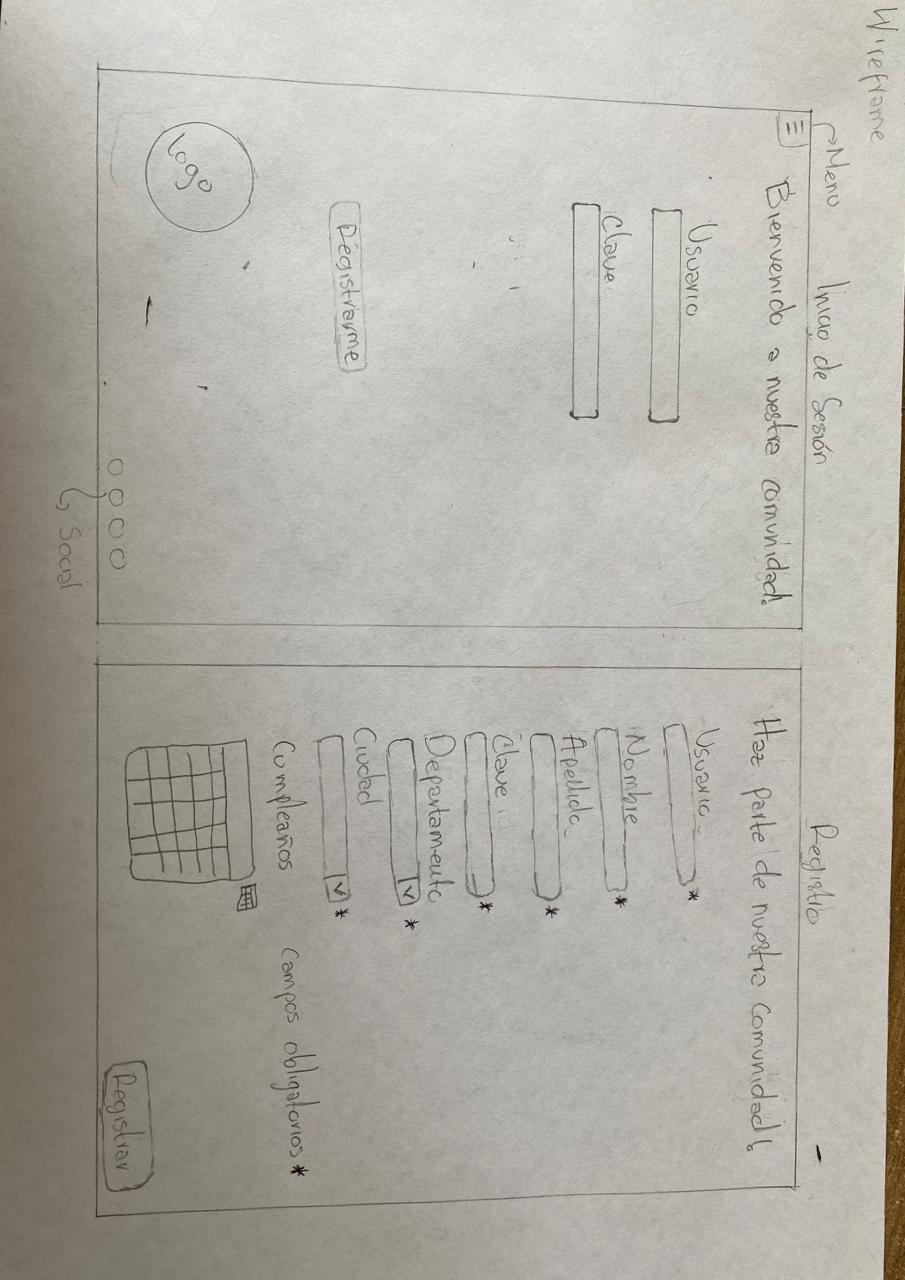 Wireframe
Menu
Inicio de Sesión
Bienvenido a nuestra comunidad!
Usuario
Clave
Registrarme
Logo
Social
Registro
Haz parte de nuestra Comunidad!
Usuario
*
Nombre
*
Apellido
*
Clave
*
Departamento
*
Ciudad
*
Cumpleaños
Campos obligatorios *
Registrar